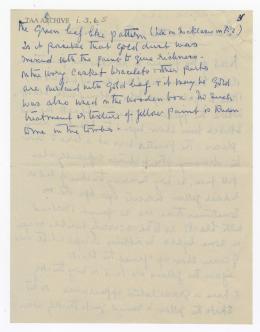 TAA ARCHIVE i.3.65
the Green leaf like pattern (like in necklaces in
Is it possible that Gold dust was
mixed with the paint to give richness.
On the Ivory Casket bracelets & other parts
are overlaid with Gold leaf & it may be Gold
was also used in the wooden box. No such
treatment or texture of yellow paint is known
to me in the tombs.